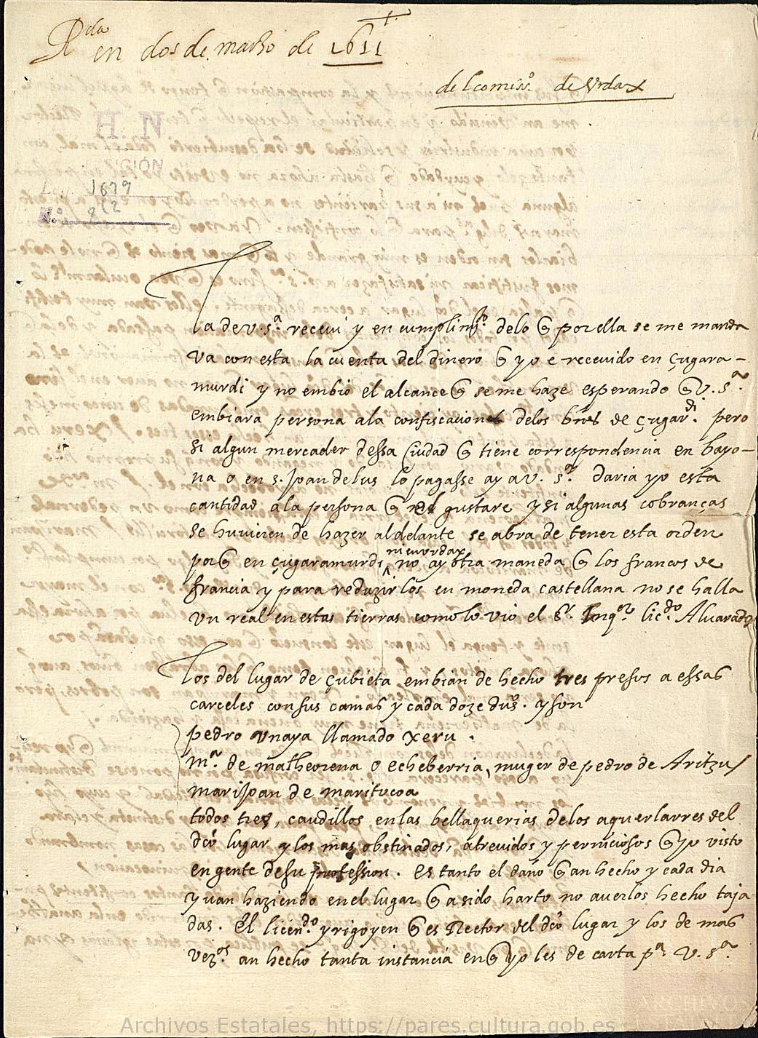 Rda en dos de março de 1611
del comiss.º de Vrdax
H. N
CIÓN
Leg. 1679
N.º 2 (2
La de v. s.ª receui y en cumplimi.º de lo q̃ por ella se me manda
va con esta la cuenta del dinero q̃ yo e receuido en çugara-
murdi y no embio el alcance q̃ se me haze esperando q̃ V. S.ª
embiara persona a la confiscacion de los bñes de çugar.di pero
si algun mercader dessa ciudad q̃ tiene correspondencia en bayo-
na o en s. joan de lus lo pagasse ay a v. s.ª daria yo esta
cantidad a la persona q̃ el gustare y si algunas cobranças
se huuieren de hazer aldelante se abra de tener esta orden
porq̃ en çugaramurdi ni en vrdax no ay otra maneda q̃ los francos de
francia y para reduzirlos en moneda castellana no se halla
vn real en estas tierras como lo vio el s.r Inq.or lic.do Aluarado
Los del lugar de çubieta embian de hecho tres presos a essas
carceles con sus camas y cada doze dus. y son
pedro vnaya llamado xeru.
m.ª de matheorena o echeberria, muger de pedro de Aritzu/
marijoan de maritucoa
todos tres, caudillos en las bellaquerias de los aquerlarres del
dcó lugar y los mas obstinados, atreuidos y perniciosos q̃ yo visto
en gente de su profession. es tanto el daño q̃ an hecho y cada dia
y van haziendo en el lugar q̃ a sido harto no auerlos hecho taja
das. El licen.do yrigoyen q̃ es Rector del dcó lugar y los de mas
vez.os an hecho tanta instancia en q̃ yo les de carta p.ª V. s.ª
Archivos Estatales, https://pares.cultura.gob.es